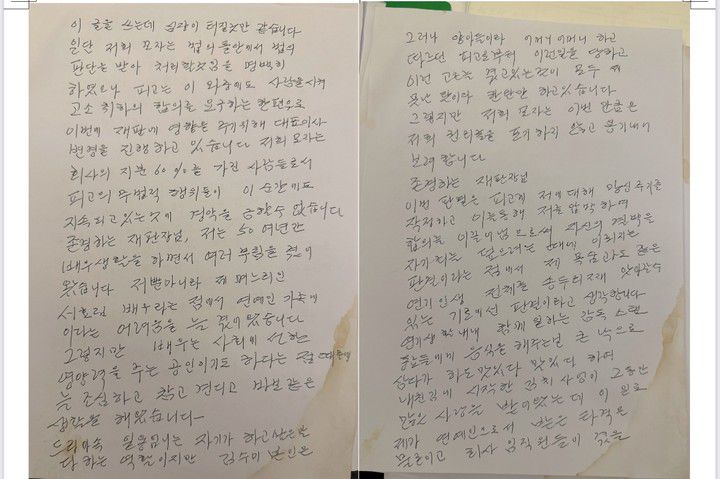 이 글을 쓰는데 심장이 터질것만 같습니다
일단 저희 모자는 법의 틀안에서 법의
판단을 받아 처리할것임을 명백히
하였으나 피고는 이 와중에도 사람을시켜
고소 취하와 합의를 요구하는 한편으로
이번에 재판에 영향을 주기위해 대표이사
변경을 진행하고 있습니다 저희 모자는
회사의 지분 60%를 가진 사람들로서
피고의 무법적 행위들이 이 순간에도
지속되고있는것에 경악을 금할수 없습니다
존경하는 재판장님, 저는 50여년간
배우생활을 하면서 여러 부침을 겪어
왔습니다 저뿐아니라 제 며느리인
서효림 배우라는 점에서 연예인 가족에
이라는 어려움을 늘 겪어왔습니다
그렇지만 배우는 사회에 선한
영향력을 주는 공인이기도 하다는 점 때문에
늘 조심하고 참고 견디고 바보같은
생각을 해왔습니다
드라마속 일용엄니는 자기가 하고싶은말
다 하는 역할이지만 김수미 본인은
그러나 양아들이라 어머니 어머니 하고
따르던 피고로부터 이런일을 당하고
이런 고통을 겪고있는것이 모두
못난 탓이라 한탄만 하고있습니다
그렇지만 저희 모자는 이번 만큼은
저희 권리를 포기하지 않고 용기내어
보려 합니다
존경하는 재판장님
이번 판결은 피고가 저에대해 망신주기를
작정하고 이를통해 저를 압박하여
합의를 이끌어냄으로써 자신의 면박을
자기죄를 덮으려는 때에 이뤄지는
판결이라는 점에서 제 목숨과도 같은
연기인생 전체를 송두리째 앗아갈수
있는 기로에선 판결이라고 생각합니다
연기생활내내 함께 일하는 감독 스탭
동료들에게 음식을 해다주는 큰 낙으로
살다가 하도 맛있다 맛있다 하여
내친김에 시작한 김치 사업이 그동안
많은 사랑을 받아왔는데 이 일로
제가 연예인으로서 받은 타격은
물론이고 회사 임직원들이 겪을